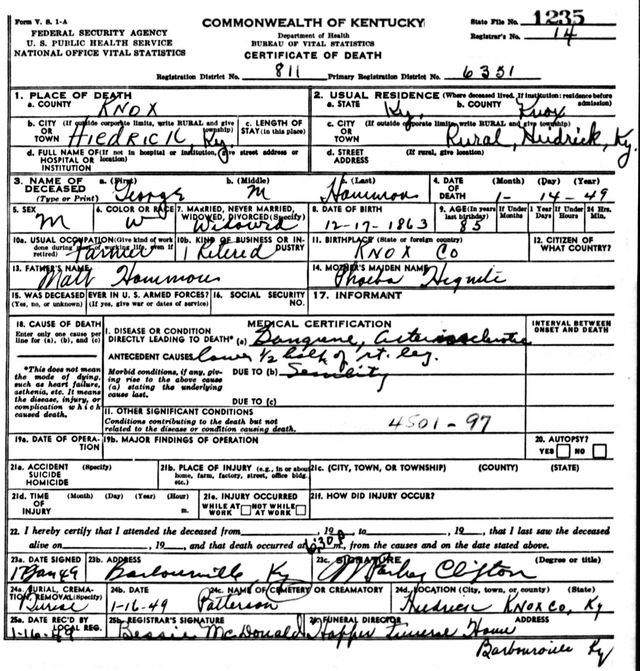 Form V. S. 1-A
COMMONWEALTH OF KENTUCKY
State File No. 1235
FEDERAL SECURITY AGENCY
Department of Health
Registrar's No. 14
U. S. PUBLIC HEALTH SERVICE
BUREAU OF VITAL STATISTICS
NATIONAL OFFICE VITAL STATISTICS
CERTIFICATE OF DEATH
Registration District No. 811 Primary Registration District No. 6351
1. PLACE OF DEATH
2. USUAL RESIDENCE (Where deceased lived. If institution: residence before admission)
a. COUNTY KNOX
a. STATE Ky. b. COUNTY Knox
b. CITY (If outside corporate limits, write RURAL and give township) OR TOWN HIEDRICK, Ky.
c. LENGTH OF STAY (in this place)
c. CITY (If outside corporate limits, write RURAL and give township) OR TOWN Rural, Heidrick, Ky.
d. FULL NAME OF (If not in hospital or institution, give location) HOSPITAL OR INSTITUTION
d. STREET ADDRESS (If rural, give location)
3. NAME OF DECEASED (Type or Print) a. (First) George b. (Middle) M c. (Last) Hammons
4. DATE OF DEATH (Month) (Day) (Year) 1- 14 - 49
5. SEX M
6. COLOR OR RACE W
7. MARRIED, NEVER MARRIED, WIDOWED, DIVORCED (Specify) Widowed
8. DATE OF BIRTH 12-17-1863
9. AGE (In years last birthday) 85
10a. USUAL OCCUPATION (Give kind of work done during most of working life, even if retired) Farmer
10b. KIND OF BUSINESS OR INDUSTRY Retired
11. BIRTHPLACE (State or foreign country) KNOX Co
12. CITIZEN OF WHAT COUNTRY?
13. FATHER'S NAME Matt Hammons
14. MOTHER'S MAIDEN NAME Phoeba
15. WAS DECEASED EVER IN U. S. ARMED FORCES? (Yes, no, or unknown) (If yes, give war or dates of service)
16. SOCIAL SECURITY NO.
17. INFORMANT
18. CAUSE OF DEATH
Enter only one cause per line for (a), (b), and (c)
MEDICAL CERTIFICATION
INTERVAL BETWEEN ONSET AND DEATH
I. DISEASE OR CONDITION DIRECTLY LEADING TO DEATH* (a) Gangrene, arteriosclerotic
ANTECEDENT CAUSES lower 1/2 half of rt. leg.
*This does not mean the mode of dying, such as heart failure, asthenia, etc. It means the disease, injury, or complication which caused death.
Morbid conditions, if any, giving rise to the above cause (a) stating the underlying cause last.
DUE TO (b) Senility
DUE TO (c)
II. OTHER SIGNIFICANT CONDITIONS
Conditions contributing to the death but not related to the disease or condition causing death.
4501-97
19a. DATE OF OPERATION
19b. MAJOR FINDINGS OF OPERATION
20. AUTOPSY? YES NO
21a. ACCIDENT SUICIDE HOMICIDE (Specify)
21b. PLACE OF INJURY (e.g., in or about home, farm, factory, street, office bldg., etc.)
21c. (CITY, TOWN, OR TOWNSHIP) (COUNTY) (STATE)
21d. TIME OF INJURY (Month) (Day) (Year) (Hour) m.
21e. INJURY OCCURRED WHILE AT WORK NOT WHILE AT WORK
21f. HOW DID INJURY OCCUR?
22. I hereby certify that I attended the deceased from , 19 to , 19 , that I last saw the deceased
alive on , 19 , and that death occurred at 6:30 P m., from the causes and on the date stated above.
23a. DATE SIGNED 17Jan49
23b. ADDRESS Barbourville, Ky
23c. SIGNATURE Parkey Clifton (Degree or title)
24a. BURIAL, CREMATION, REMOVAL (Specify) Burial
24b. DATE 1-16-49
24c. NAME OF CEMETERY OR CREAMATORY Patterson
24d. LOCATION (City, town, or county) (State) Hedrick KNOX Co, Ky
25a. DATE REC'D BY LOCAL REG. 1-16-49
25b. REGISTRAR'S SIGNATURE Bessie McDonald
26. FUNERAL DIRECTOR ADDRESS Hopper Funeral Home
Barbourville Ky